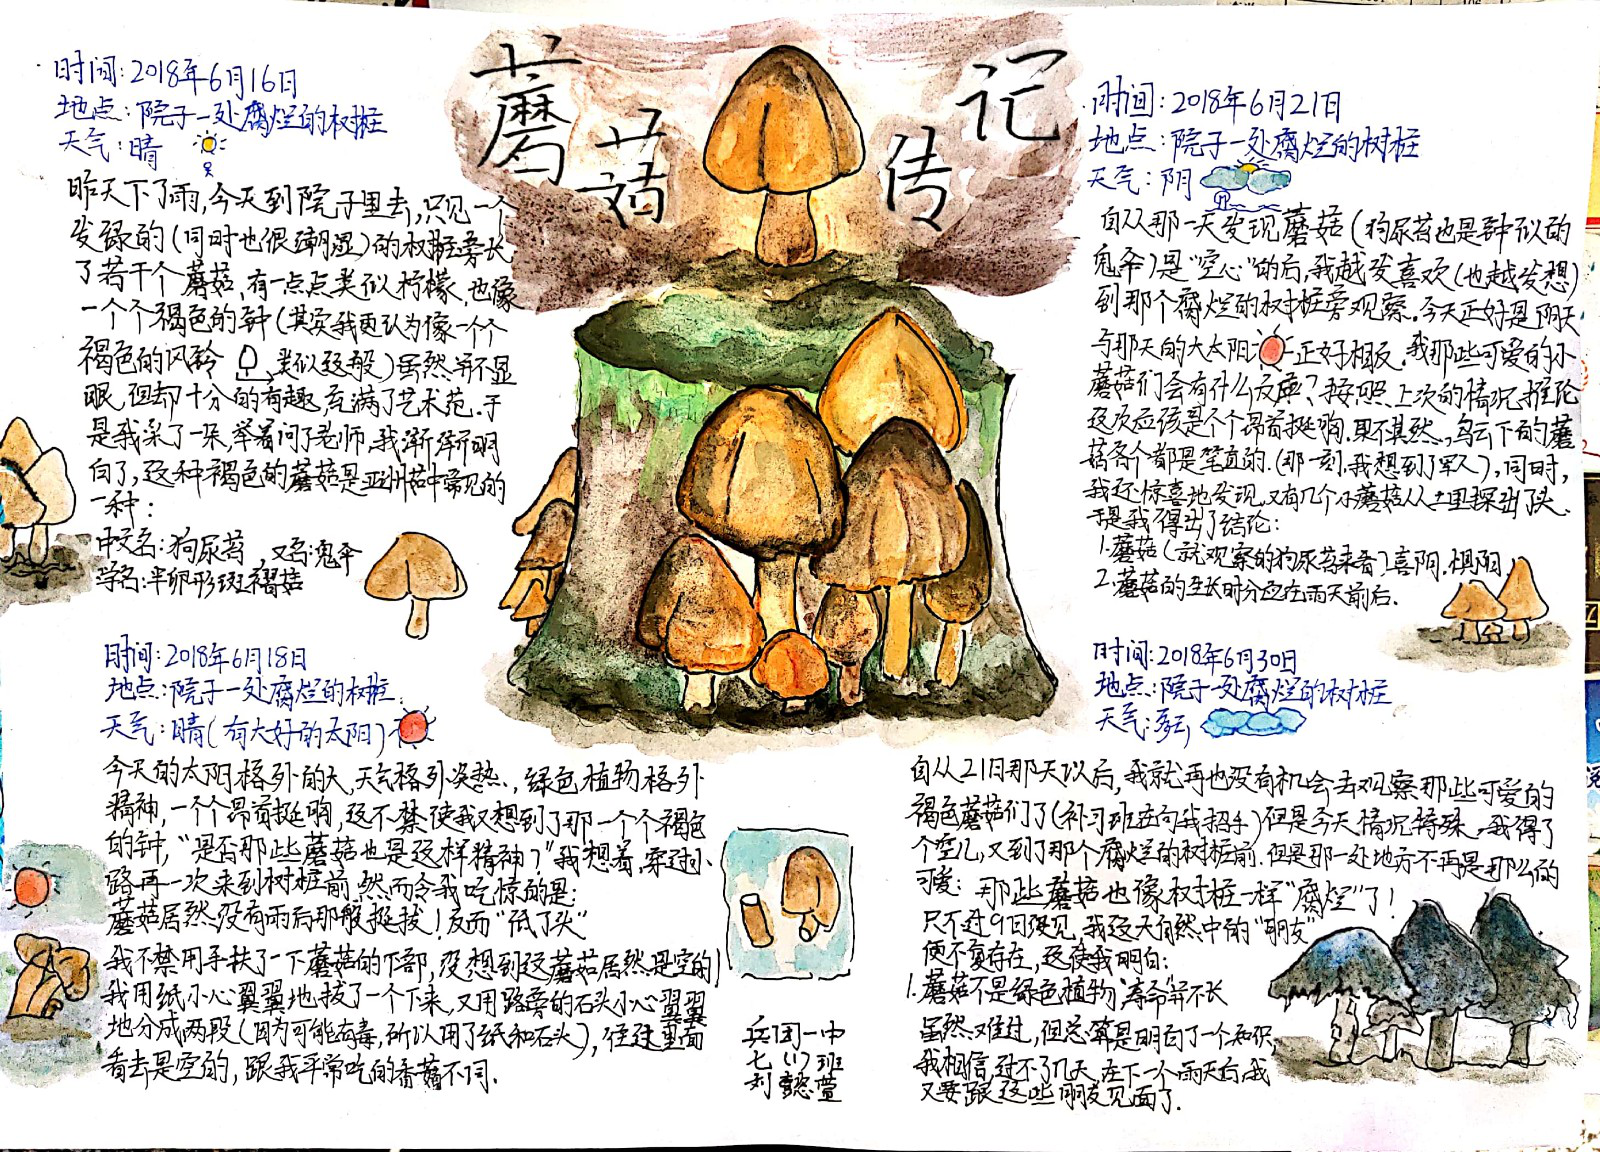 蘑菇传记
时间:2018年6月16日
地点:院子一处腐烂的树桩
天气:晴
昨天下了雨,今天到院子里去,只见一个
发绿的(同时也很潮湿)的树桩旁长
了若干个蘑菇,有一点点类似柠檬,也像
一个个褐色的钟(其实我更认为像一个个
褐色的风铃 类似这般)虽然并不显
眼,但却十分的有趣,充满了艺术范.于
是我采了一朵,举着问了老师.我渐渐明
白了,这种褐色的蘑菇是亚洲菇中常见的
一种:
中文名:狗尿苔,又名:鬼伞
学名:半卵形斑褶菇
时间:2018年6月18日
地点:院子一处腐烂的树桩.
天气:晴(有大好的太阳)
今天的太阳格外的大,天气格外炎热.,绿色植物格外
精神,一个个昂首挺胸,这不禁使我又想到了那一个个褐色
的钟,“是否那些蘑菇也是这样精神?”我想着,穿过小
路再一次来到树桩前.然而令我吃惊的是:
蘑菇居然没有雨后那般挺拔!反而“低了头”
我不禁用手扶了一下蘑菇的下部,没想到这蘑菇居然是空的!
我用纸小心翼翼地拔了一个下来,又用路旁的石头小心翼翼
地分成两段(因为可能有毒,所以用了纸和石头),往过里面
看去是空的,跟我平常吃的香菇不同.
兵团一中
七(17)班
刘懿萱
时间:2018年6月21日
地点:院子一处腐烂的树桩
天气:阴
自从那一天发现蘑菇(狗尿苔也是钟似的
鬼伞)是“空心”的后,我越发喜欢(也越发想)
到那个腐烂的树桩旁观察.今天正好是阴天
与那天的大太阳 正好相反.我那些可爱的小
蘑菇们会有什么反应?按照上次的情况推论
这次应该是个个昂首挺胸.果不其然,乌云下的蘑
菇各个都是笔直的.(那一刻,我想到了军人),同时,
我还惊喜地发现又有几个小蘑菇从土里探出了头.
于是我得出了结论:
1.蘑菇(就观察的狗尿苔来看)喜阴.惧阳.
2.蘑菇的生长时分应在雨天前后.
时间:2018年6月30日
地点:院子一处腐烂的树桩
天气:多云
自从21日那天以后,我就再也没有机会去观察那些可爱的
褐色蘑菇们了(补习班在向我招手)但是今天情况特殊,我得了
个空儿,又到了那个腐烂的树桩前.但是那一处地方不再是那么的
可爱: 那些蘑菇也像树桩一样“腐烂”了!
只不过9日没见,我这大自然中的“朋友”
便不复存在,这使我明白:
1.蘑菇不是绿色植物,寿命并不长
虽然难过,但总算是明白了一个知识,
我相信,过不了几天,在下一个雨天后,我
又要跟这些朋友见面了.